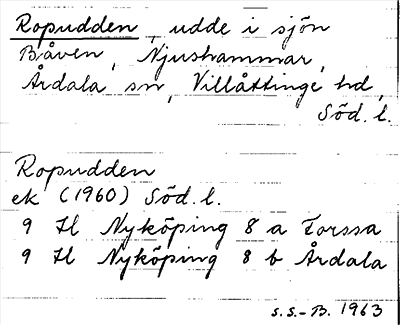 Ropudden, udde i sjön
Båven, Njushammar,
Årdala sn, Villåttinge hd,
Söd. l.
Ropudden
ek (1960) Söd. l.
9 H Nyköping 8 a Forssa
9 H Nyköping 8 b Årdala
S.S.-B. 1963